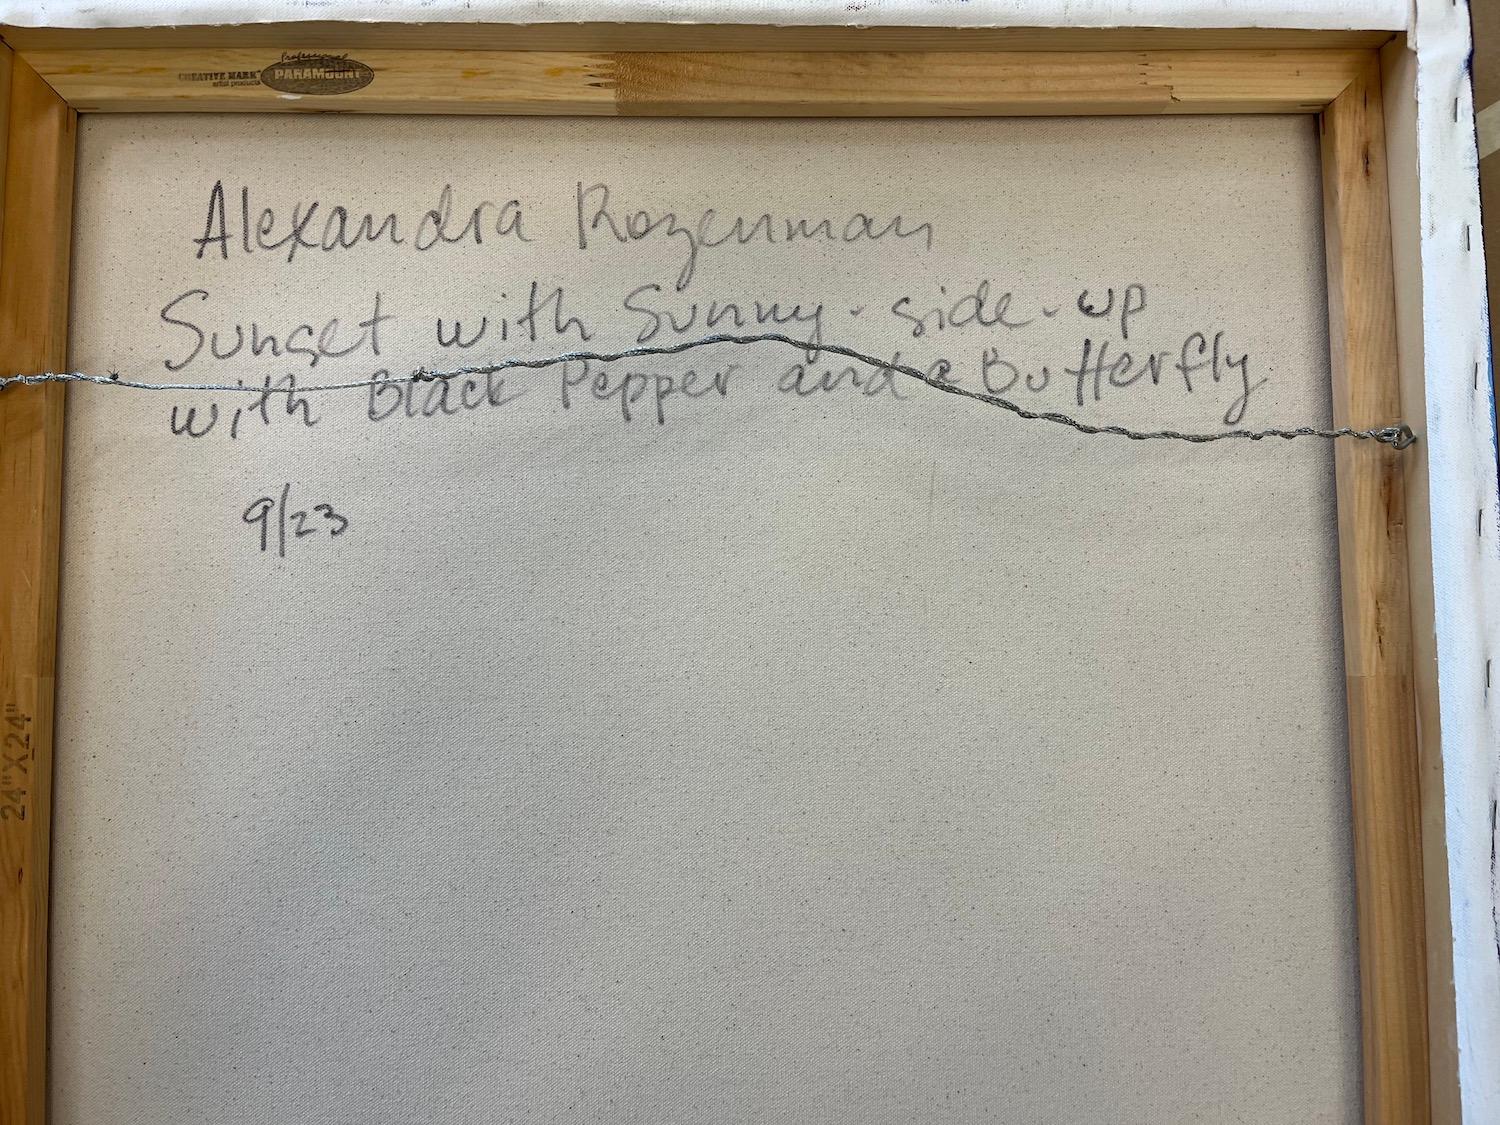 Professional
CREATIVE MARK PARAMOUNT
artist products
Alexandra Rozenman
Sunset with Sunny-side-up
with Black Pepper and a Butterfly
9/23
24"X24"